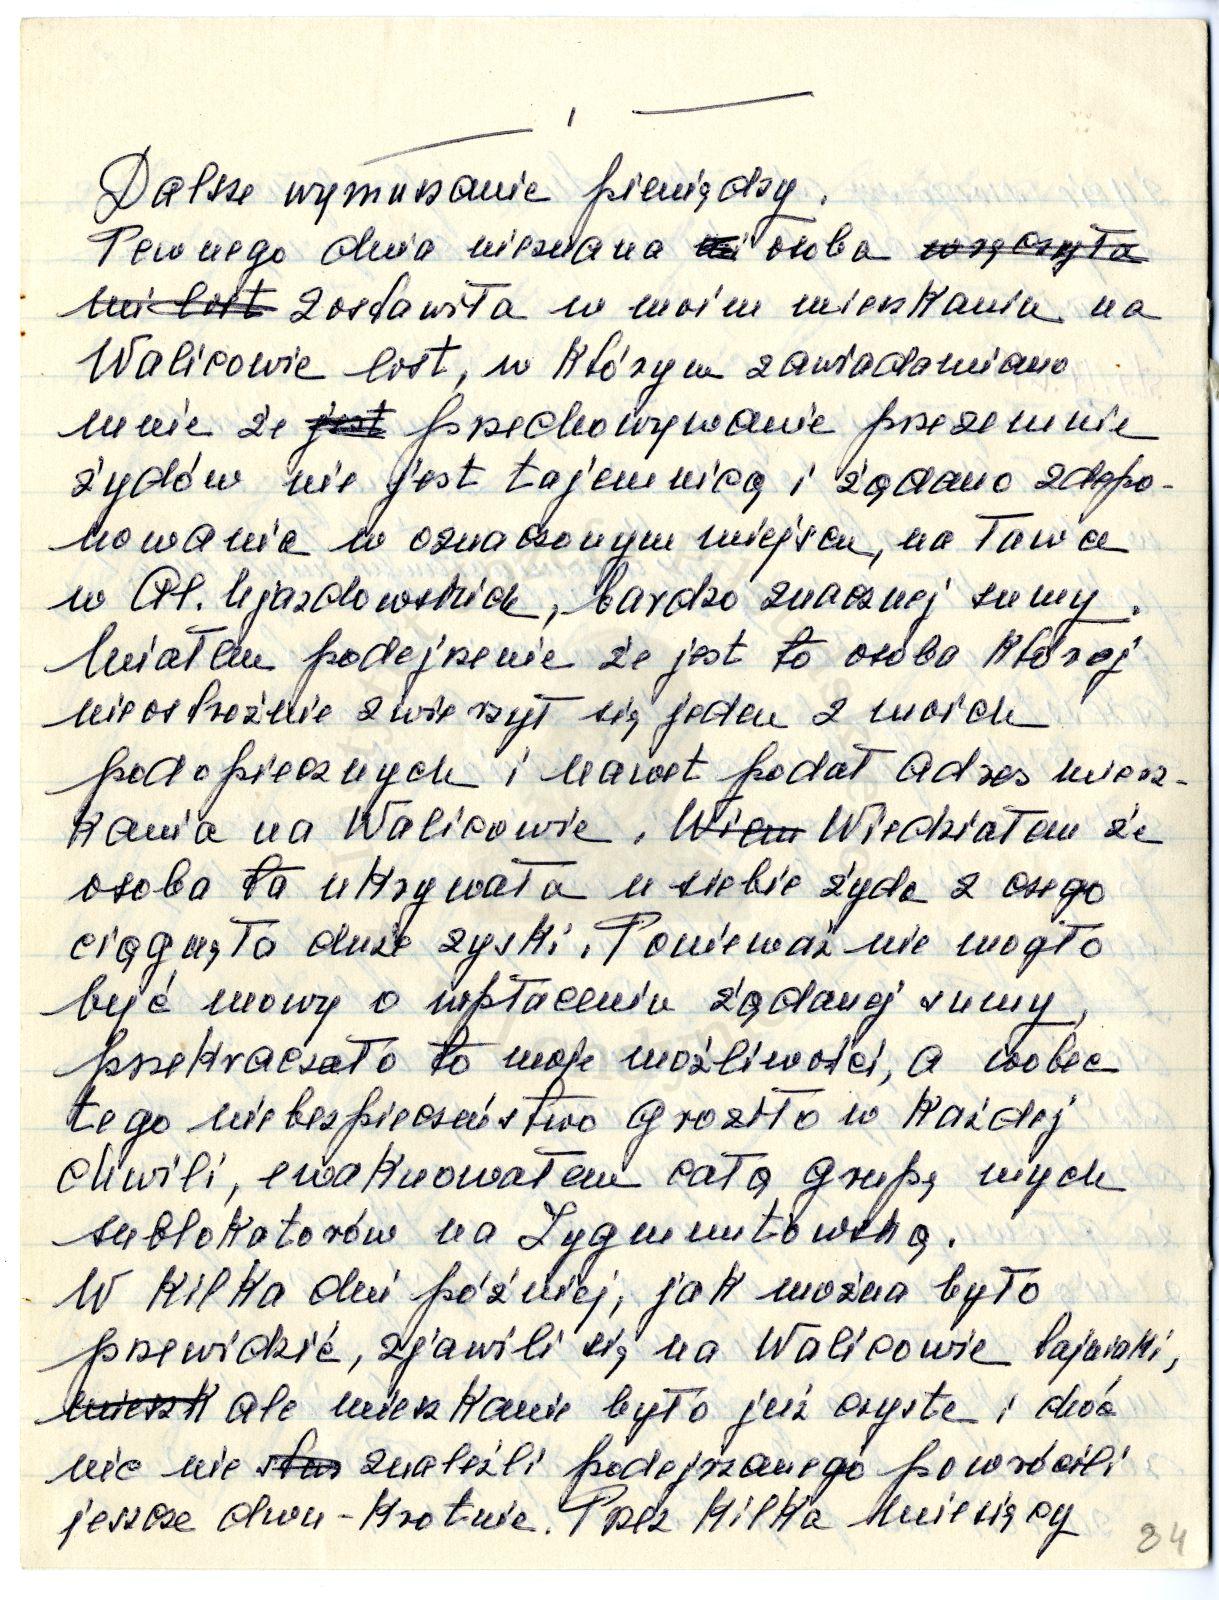 1
Dalsze wymuszanie pieniędzy.
Pewnego dnia nieznana mi osoba wręczyła
mi list zostawiła w moim mieszkaniu na
Walicowie list, w którym zawiadamiano
mnie że jest przechowywanie przezemnie
żydów nie jest tajemnicą i żądano zdepo-
nowanie w oznaczonym miejscu, na ławce
w Al. Ujazdowskich, bardzo znacznej sumy.
Miałem podejrzenie że jest to osoba której
nieostrożnie zwierzył się jeden z moich
podopiecznych i nawet podał adres miesz-
kania na Walicowie. Wiem Wiedziałem że
osoba ta ukrywała u siebie żyda z czego
ciągnęła duże zyski. Ponieważ nie mogło
być mowy o wpłaceniu żądanej sumy,
przekraczało to moje możliwości, a wobec
tego niebezpieczeństwo groziło w każdej
chwili, ewakuowałem całą grupę mych
sublokatorów na Zygmuntowską.
W kilka dni później, jak można było
przewidzić, zjawili się na Walicowie tajniaki,
mieszk ale mieszkanie było już czyste i choć
nic nie znaleźli podejrzanego powrócili
jeszcze dwu-krotnie. Przez kilka miesięcy
84